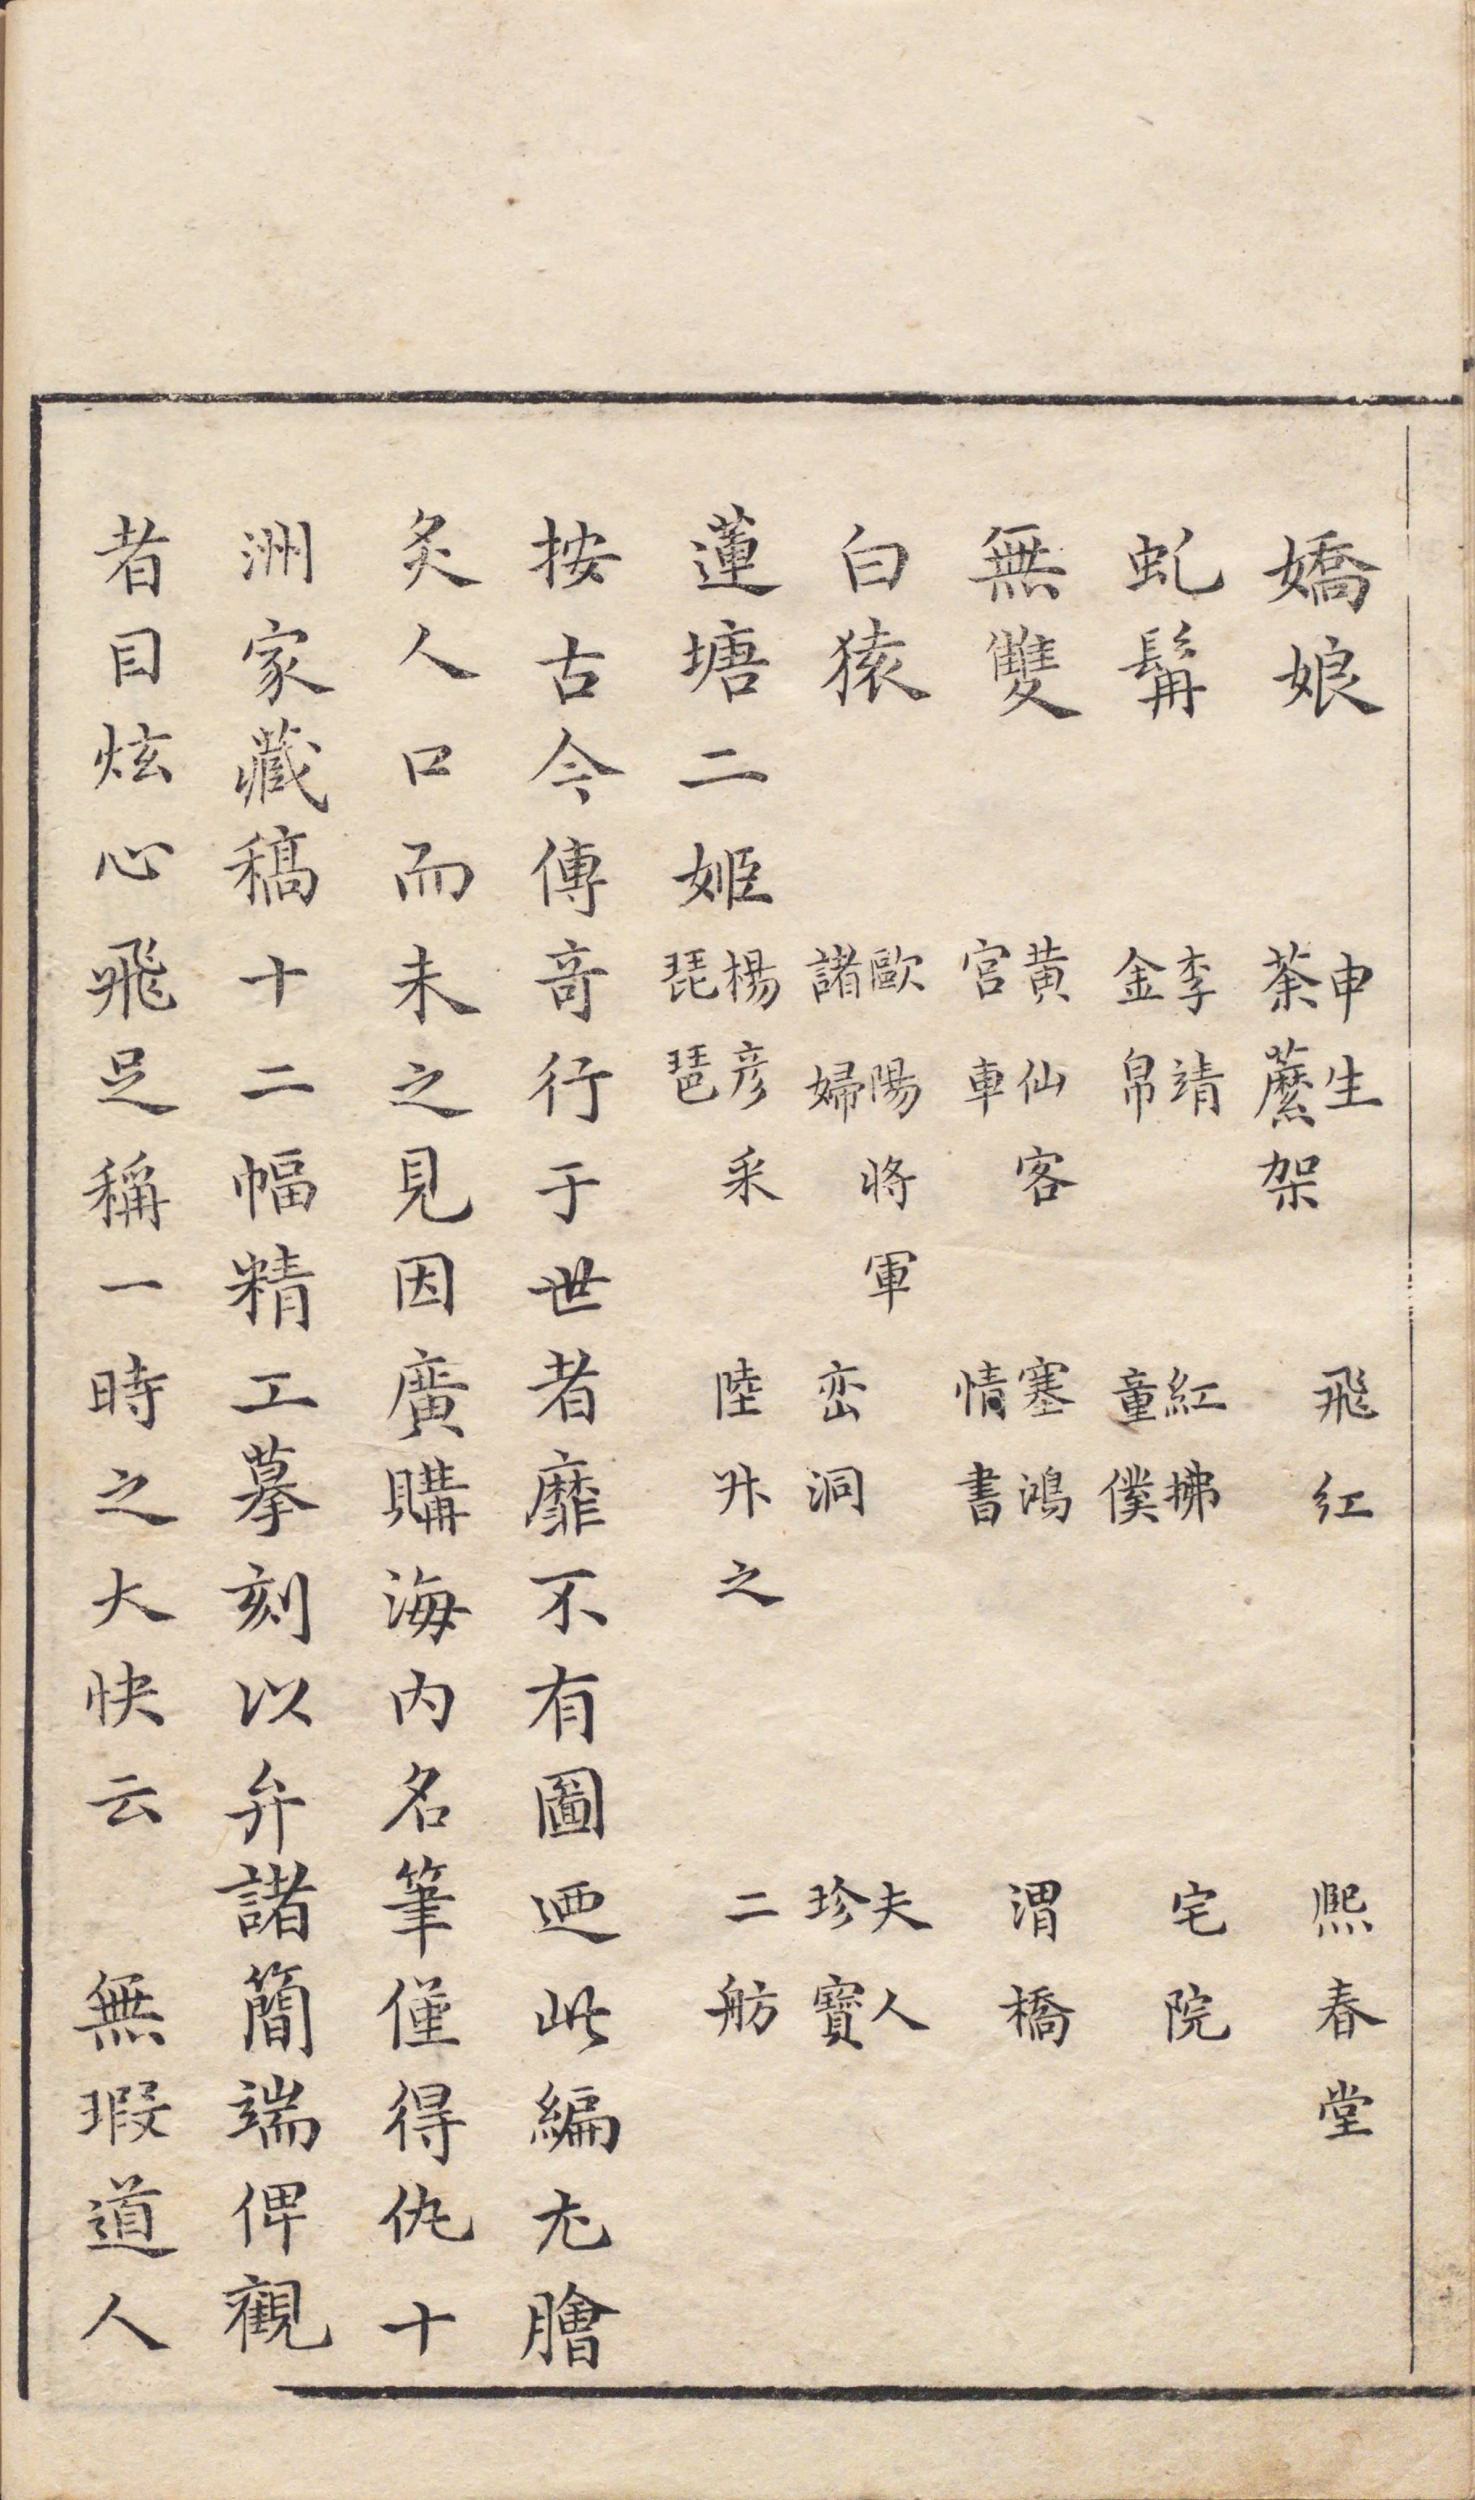 嬌娘 申生 荼蘼架 飛紅 熈春堂
虬髯 李靖 金帛 紅拂 童僕 宅院
無雙 黄仙客 宮車 塞鴻 情書 渭橋
白猿 歐陽將軍 諸婦 峦洞 夫人 珍寶
蓮塘二姬 楊彦采 琵琶 陸升之 二舫
按古今傳竒行于世者靡不有圖廼此編尤膾
炙人口而未之見因廣購海内名筆僅得仇十
洲家藏稿十二幅精工摹刻以弁諸簡端俾觀
者目炫心飛足稱一時之大快云 無瑕道人